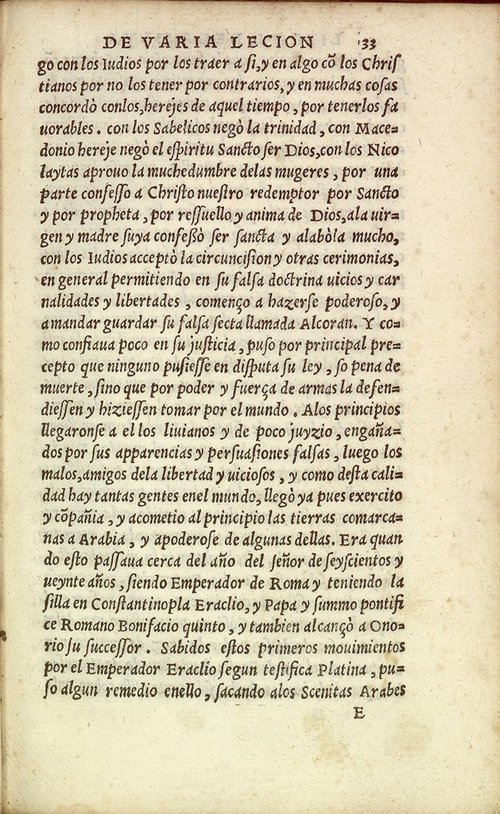 DE VARIA LECION 33
go con los Iudios por los traer a si, y en algo cõ los Chriſ
tianos por no los tener por contrarios, y en muchas coſas
concordò conlos, herejes de aquel tiempo, por tenerlos fa
uorables. con los Sabelicos negò la trinidad, con Mace=
donio hereje negò el eſpiritu Sancto ſer Dios, con los Nico
laytas aprouo la muchedumbre delas mugeres, por una
parte confeſſo a Chriſto nueſtro redemptor por Sancto
y por propheta, por reſſuello y anima de Dios, ala uir=
gen y madre ſuya confeßò ſer ſancta y alabòla mucho,
con los Iudios acceptò la circunciſion y otras cerimonias,
en general permitiendo en ſu falſa doctrina uicios y car
nalidades y libertades, començo a hazerſe poderoſo, y
a mandar guardar ſu falſa ſecta llamada Alcoran. Y co=
mo confiaua poco en ſu juſticia, puſo por principal pre=
cepto que ninguno puſieſſe en diſputa ſu ley, ſo pena de
muerte, ſino que por poder y fuerça de armas la defen=
dieſſen y hizieſſen tomar por el mundo. Alos principios
llegaronſe a el los liuianos y de poco juyzio, engaña=
dos por ſus apparencias y perſuaſiones falſas, luego los
malos, amigos dela libertad y uicioſos, y como deſta cali=
dad hay tantas gentes enel mundo, llegò ya pues exercito
y cõpañia, y acometio al principio las tierras comarca=
nas a Arabia, y apoderoſe de algunas dellas. Era quan
do eſto paſſaua cerca del año del ſeñor de ſeyſcientos y
ueynte años, ſiendo Emperador de Roma y teniendo la
ſilla en Conſtantinopla Eraclio, y Papa y ſummo pontifi
ce Romano Bonifacio quinto, y tambien alcançò a Ono=
rio ſu ſucceſſor. Sabidos eſtos primeros mouimientos
por el Emperador Eraclio ſegun teſtifica Platina, pu=
ſo algun remedio enello, ſacando alos Scenitas Arabes
E